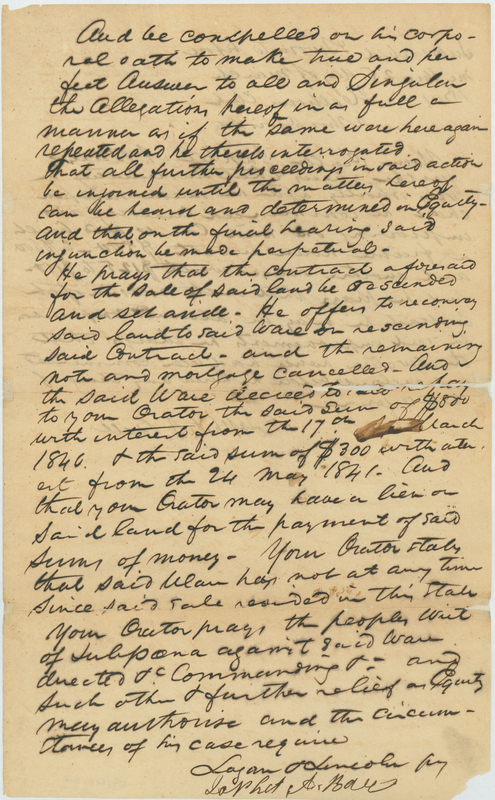 And be compelled on his corpo-
ral oath to make true and per
fect Answer to all and Singular
the Allegations hereof in as full a
manner as if the same were here again
repeated and he thereto interrogated.
that all further proceedings in said action
be injoined until the matters hereof
can be heard and determined in Equity-
And that on the final hearing said
injunction be made perpetual-
He prays that the contract aforesaid
for the sale of said land be rescended
and set aside. He offers to reconvey
said land to said Ware on rescending
said Contract- and the remaining
note and mortgage cancelled- And
the said Ware decreed to pay
to your Orator the said Sum of $800
with interest from the 17th March
1840. & the said sum of $300 with inter.
est from the 24 May 1841. And
that your Orator may have a lien on
said land for the payment of said
sums of money- Your Orator states
that said Ware has not at any time
since said sale resided in this State
Your Orator prays the peoples Writ
of Subpœna against said Ware
directed &c Commanding &c- and
such other & further relief as Equity
may authorise and the circum-
stances of his case require
Logan & Lincoln for
Japhet A. Ball